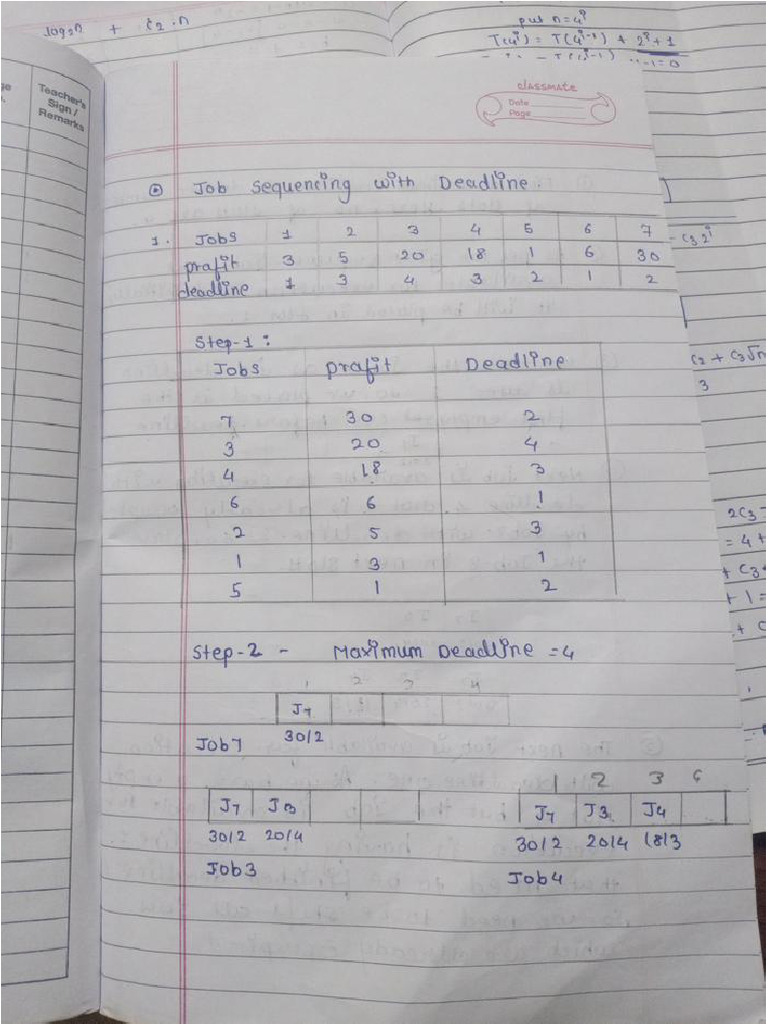 log2n + C2·n
put n=4^i
T(4^i) = T(4^i-1) + 2^i+1
ge
Teacher's
Sign /
Remarks
classmate
Date
Page
Job sequencing with Deadline.
1. Jobs 1 2 3 4 5 6 7
prafit 3 5 20 18 1 6 30
deadline 1 3 4 3 2 1 2
Step-1 :
Jobs prafit Deadline
7 30 2
3 20 4
4 18 3
6 6 1
2 5 3
1 3 1
5 1 2
Step-2 - Maximum Deadline =4
1 2 3 4
J7
30/2
Job7
1 2 3 4
J7 J3 J7 J3 J4
30/2 20/4 30/2 20/4 18/3
Job3 Job4
C3 2^i
C2 + C3√n
3
2C3
= 4 +
+ C3
+ 1 =
+ C